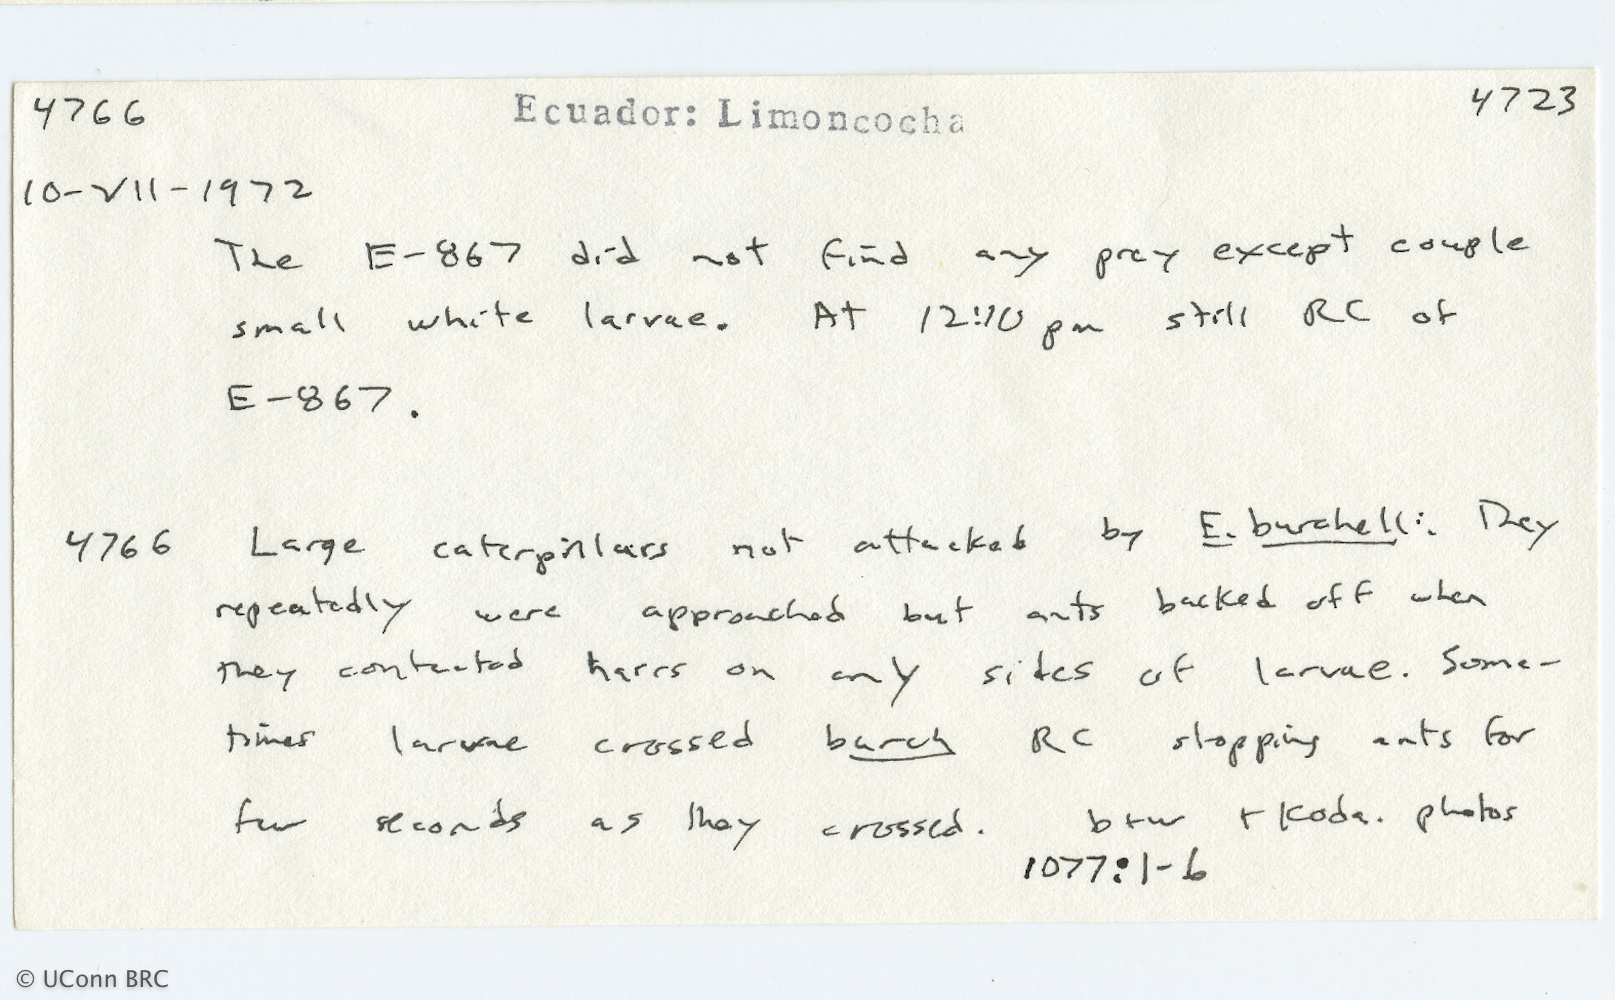 4766 Ecuador: Limoncocha 4723
10-VII-1972
The E-867 did not find any prey except couple
small white larvae. At 12:10 pm still RC of
E-867.
4766 Large caterpillars not attacked by E. burchelli. They
repeatedly were approached but ants backed off when
they contacted hairs on any sides of larvae. Some-
times larvae crossed burch RC stopping ants for
few seconds as they crossed. b+w + Koda. photos
1077:1-6
© UConn BRC